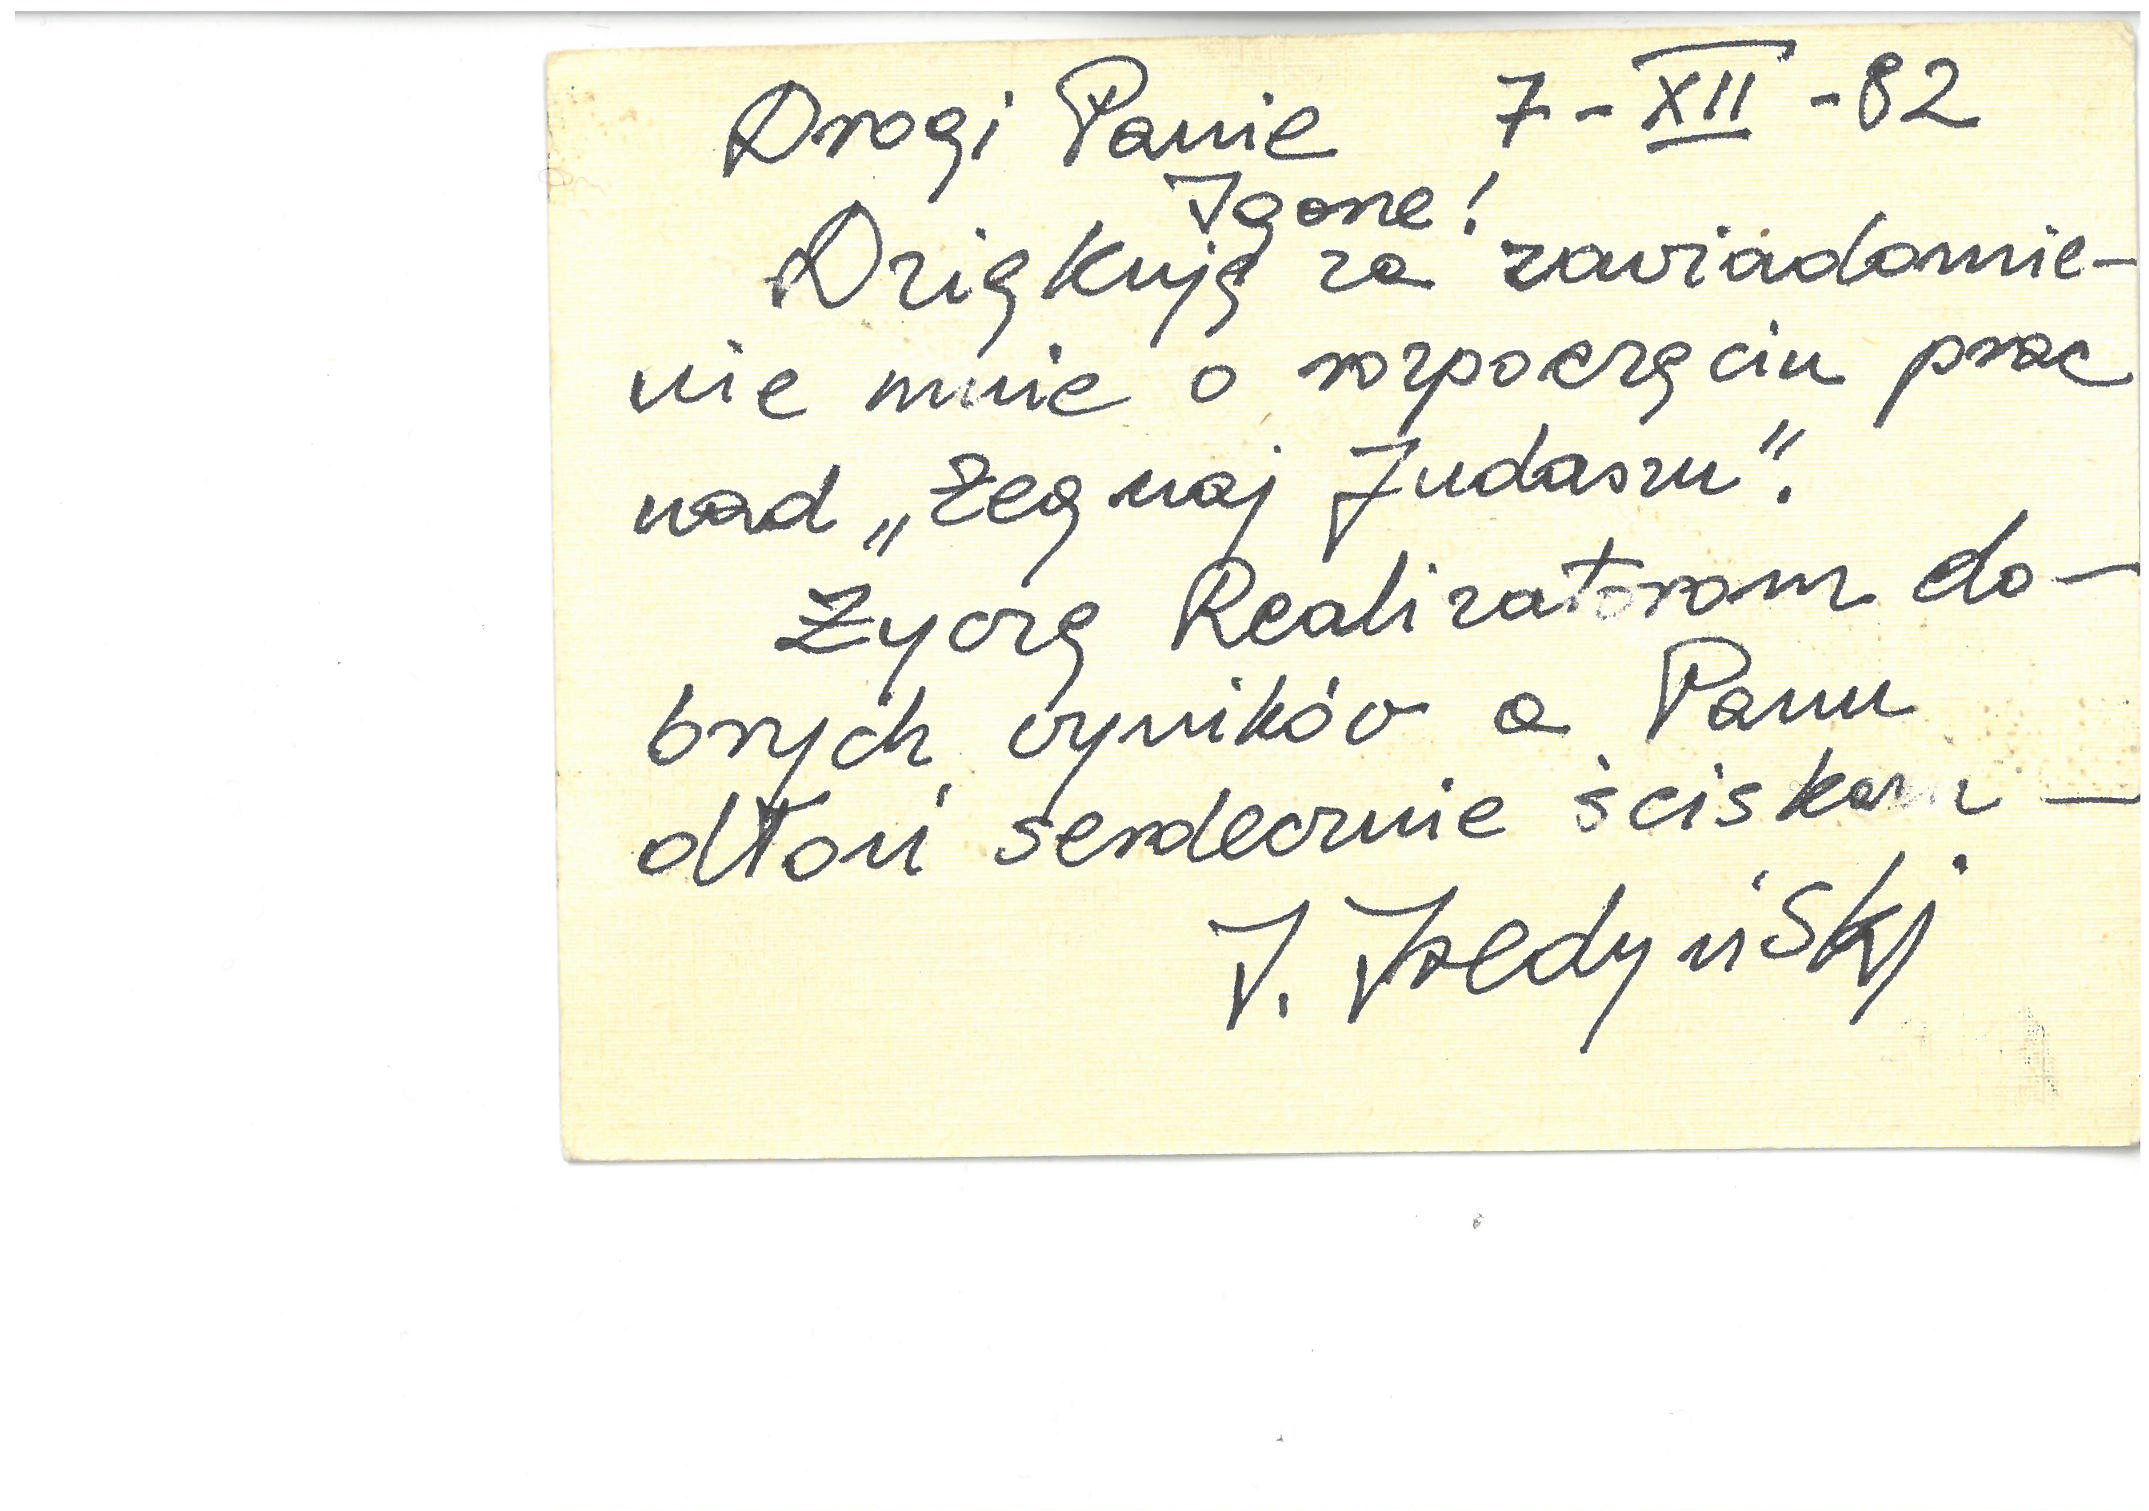 Drogi Panie 7-XII-82
Igorze!
Dziękuję za zawiadomie-
nie mnie o rozpoczęciu prac
nad „Żegnaj Judaszu".
Życzę Realizatorom do-
brych wyników a Panu
dłoń serdecznie ściskam -
I. Iredyński